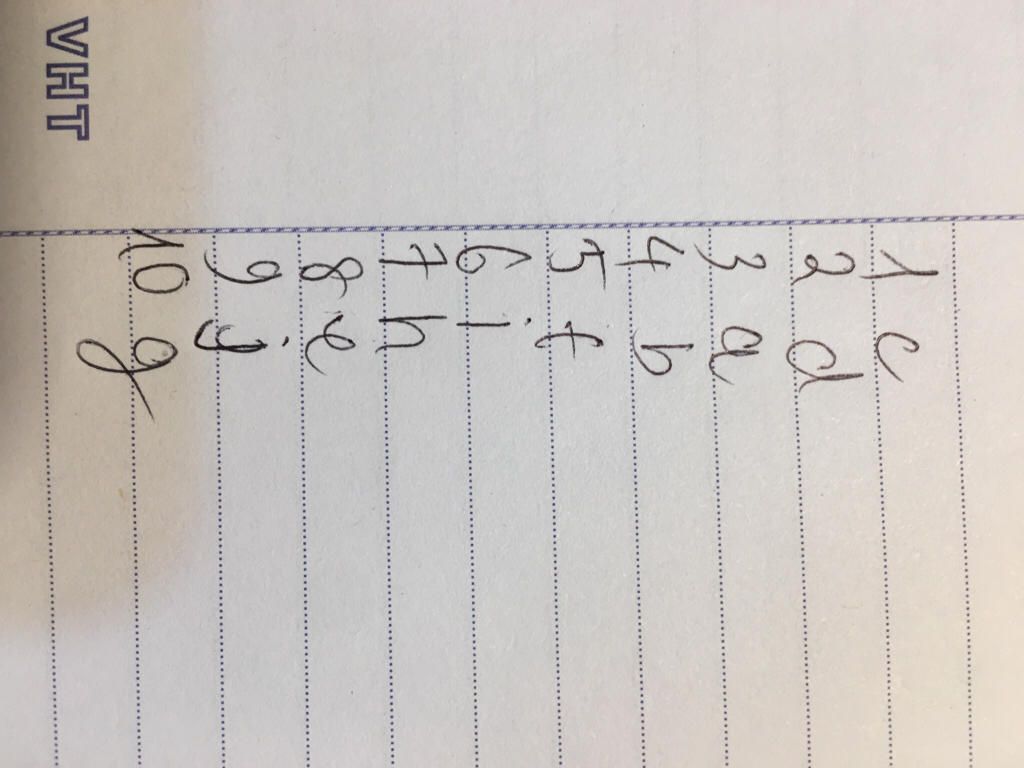 1 c
2 d
3 a
4 b
5 f
6 i
7 h
8 e
9 j
10 g
VHT